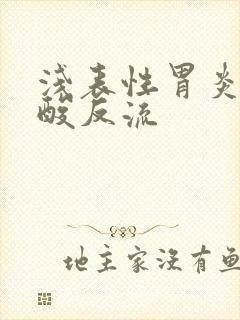 浅表性胃炎
酸反流
地主家没有鱼